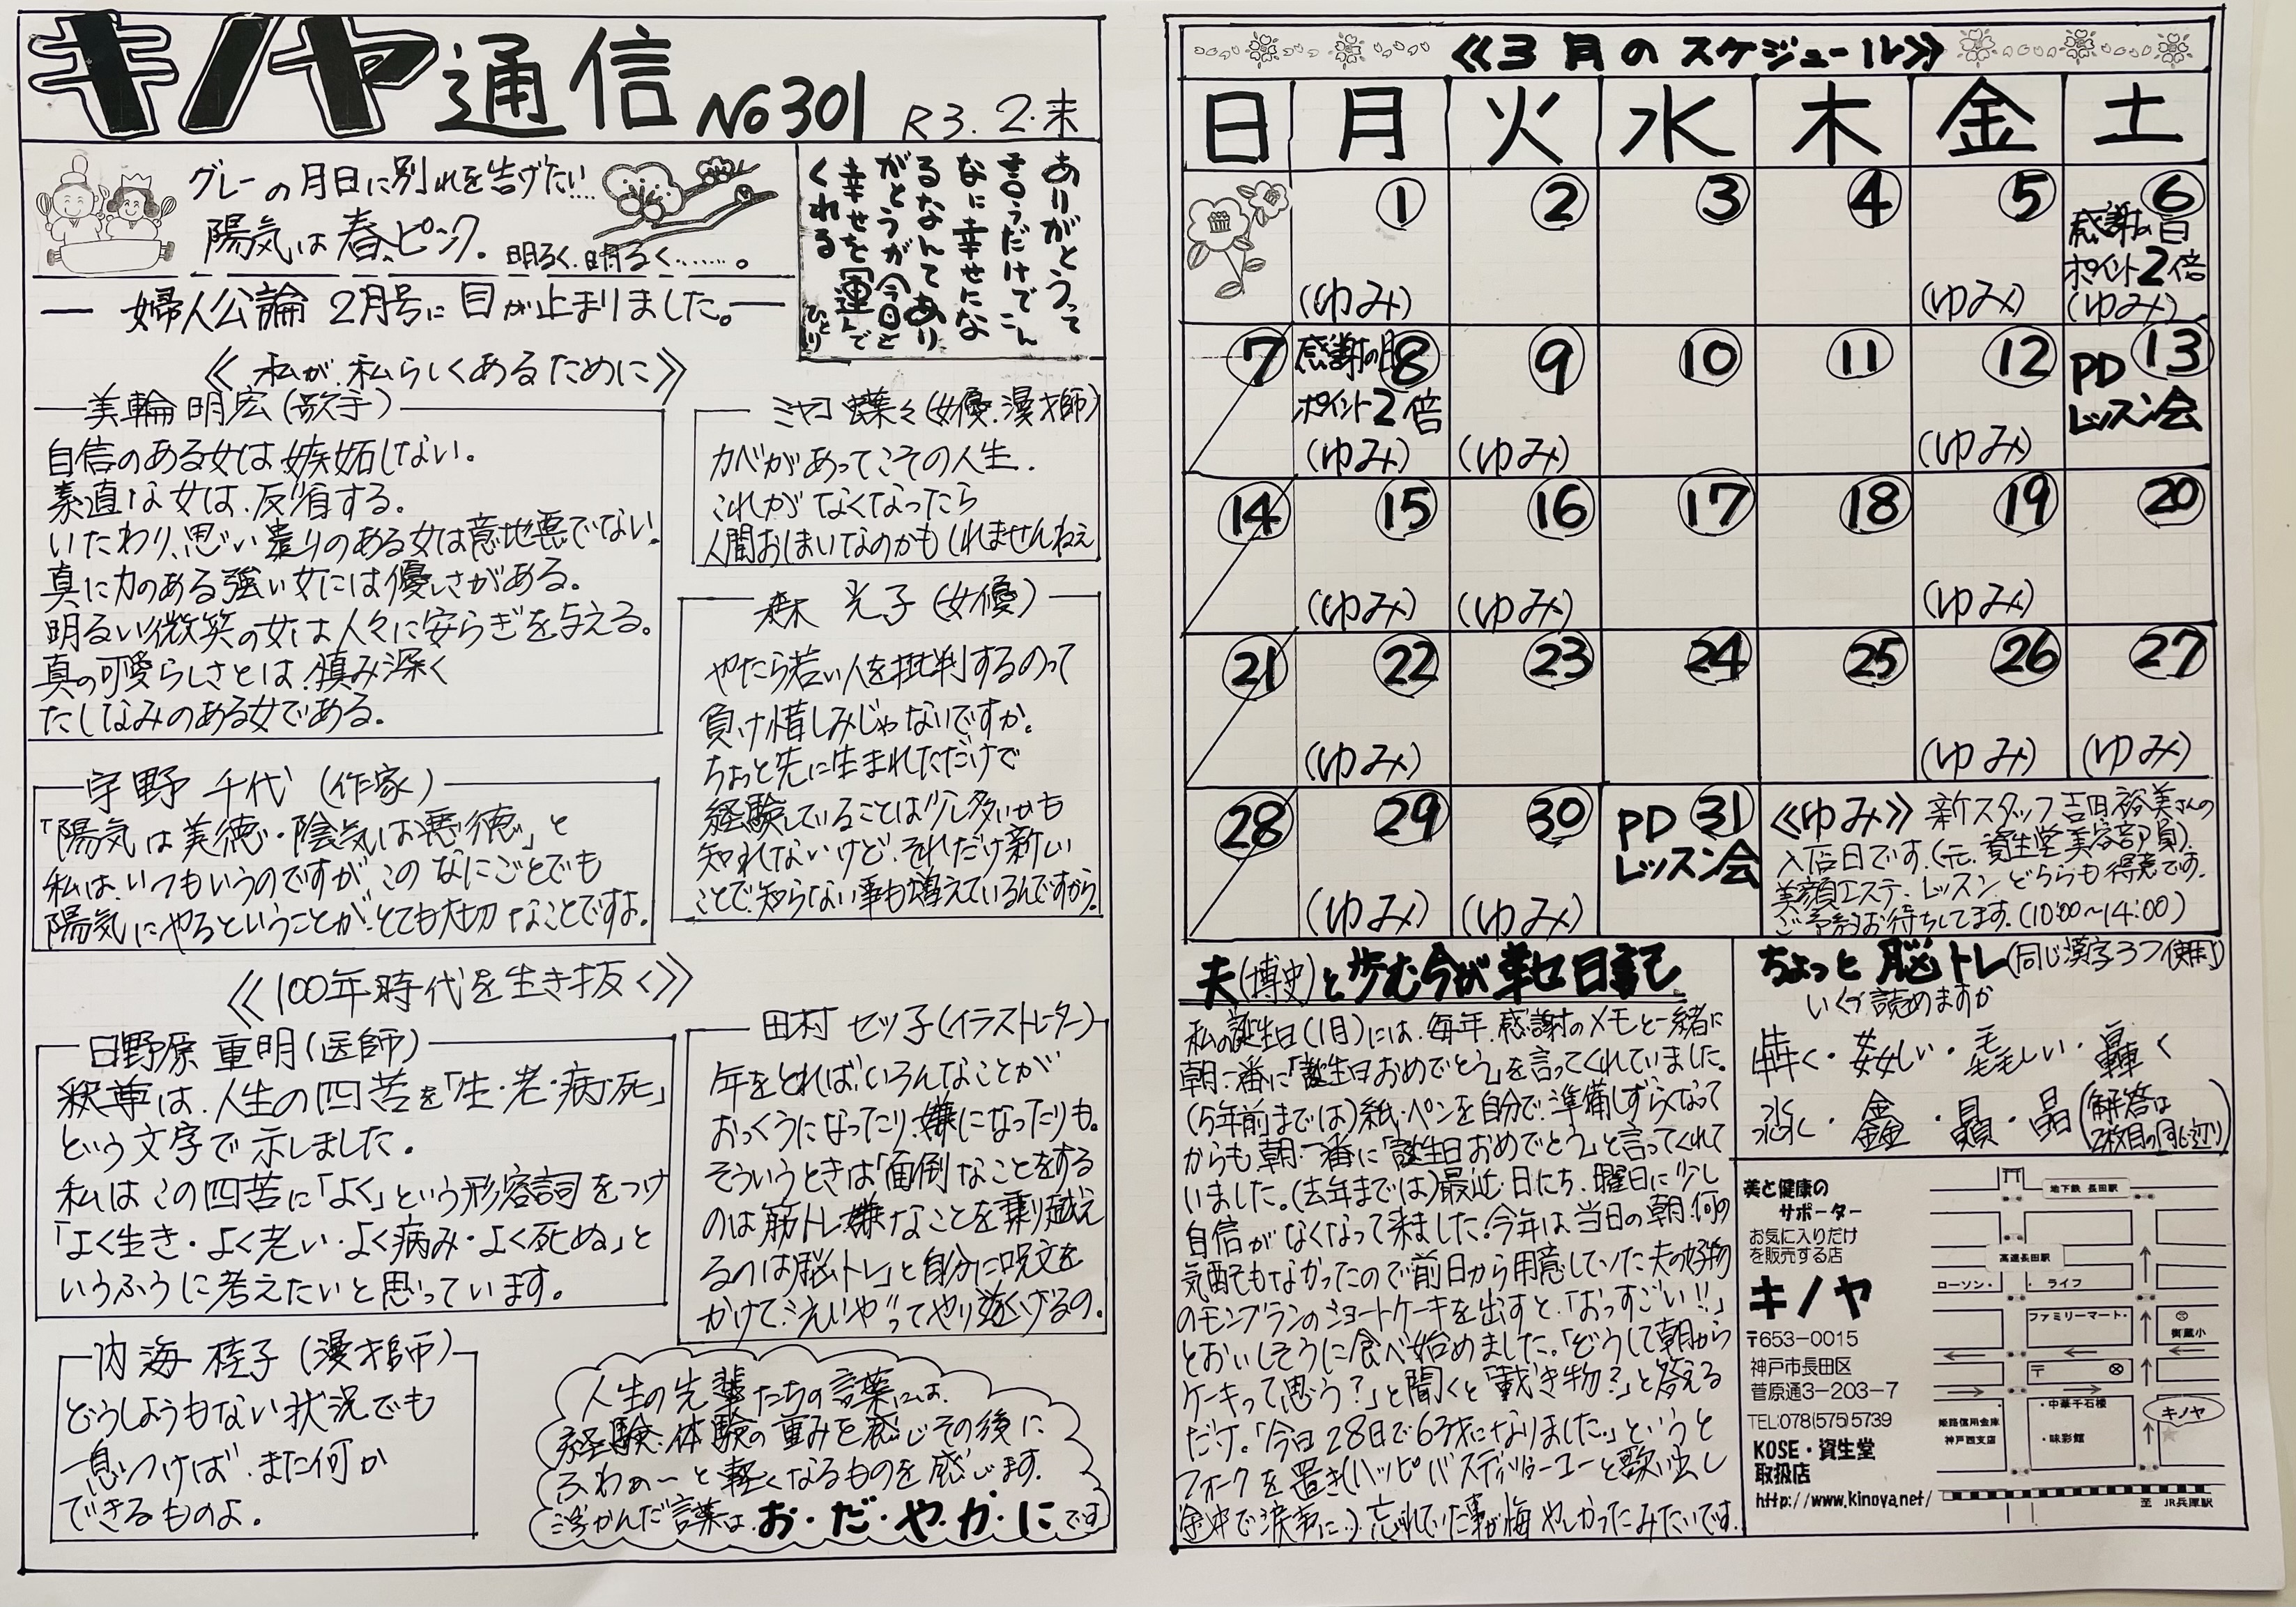 キノヤ通信 No301 R3.2.末
グレーの月日に別れを告げたい…
陽気は春、ピンク。明るく、明るく……。
ありがとうって
言うだけでこん
なに幸せにな
るなんてあり
がとうが今日も
幸せを運んで
くれる ひとり
婦人公論 2月号に目が止まりました。
《私が、私らしくあるために》
美輪明宏(歌手)
自信のある女は嫉妬しない。
素直な女は、反省する。
いたわり、思い遣りのある女は意地悪でない!
真に力のある強い女には優しさがある。
明るい微笑の女は人々に安らぎを与える。
真の可愛らしさとは、慎み深く
たしなみのある女である。
ミヤコ蝶々(女優.漫才師)
カベがあってこその人生.
これがなくなったら
人間おしまいなのかもしれませんねえ
森 光子(女優)
やたら若い人を批判するのって
負け惜しみじゃないですか。
ちょっと先に生まれただけで
経験していることは少し多いかも
知れないけど、それだけ新しい
ことで、知らない事も増えているんですから。
宇野 千代(作家)
「陽気は美徳・陰気は悪徳」と
私は、いつもいうのですが、このなにごとでも
陽気にやるということが、とても大切なことですよ。
《100年時代を生き抜く》
日野原 重明(医師)
釈尊は、人生の四苦を「生・老・病・死」
という文字で示しました.
私はこの四苦に「よく」という形容詞をつけ
「よく生き・よく老い・よく病み・よく死ぬ」と
いうふうに考えたいと思っています。
田村 セツ子(イラストレーター)
年をとれば、いろんなことが
おっくうになったり、嫌になったりも。
そういうときは「面倒なことをする
のは筋トレ、嫌なことを乗り越え
るのは脳トレ」と自分に呪文を
かけて、“えいや”ってやり遂げるの。
内海 桂子(漫才師)
どうしようもない状況でも
一息つけば、また何か
できるものよ.
人生の先輩たちの言葉には、
経験、体験の重みを感じその後に
ふわぁ〜と軽くなるものを感じます.
浮かんだ言葉は、お・だ・や・か・にです
《3月のスケジュール》
日 月 火 水 木 金 土
1 2 3 4 5 6
感謝の日
ポイント2倍
(ゆみ) (ゆみ) (ゆみ)
7 8 9 10 11 12 13
感謝の日
ポイント2倍
PD
レッスン会
(ゆみ) (ゆみ) (ゆみ)
14 15 16 17 18 19 20
(ゆみ) (ゆみ) (ゆみ)
21 22 23 24 25 26 27
(ゆみ) (ゆみ) (ゆみ)
28 29 30 31
PD
レッスン会
(ゆみ) (ゆみ)
《ゆみ》新スタッフ吉田裕美さんの
入店日です.(元.資生堂美容部員).
美顔エステ、レッスンどちらも得意です.
ご予約お待ちしてます.(10:00〜14:00)
夫(博史)と歩む今が幸せ日記
私の誕生日(1月)には、毎年、感謝のメモと一緒に
朝一番に「誕生日おめでとう」を言ってくれていました。
(5年前までは)紙・ペンを自分で、準備しずらくなって
からも朝一番に「誕生日おめでとう」と言ってくれて
いました。(去年までは)最近、日にち、曜日に少し
自信がなくなって来ました。今年は、当日の朝、何の
気配もなかったので前日から用意していた夫の好物
のモンブランのショートケーキを出すと、「おっすごい!!」
とおいしそうに食べ始めました。「どうして朝から
ケーキって思う?」と聞くと「戴き物?」と答える
だけ。「今日28日で63才になりました。」というと
フォークを置き(ハッピバースディツーユーと歌い出し
途中で涙声に…)忘れていた事が悔やしかったみたいです.
ちょっと脳トレ(同じ漢字3つ使用)
いくつ読めますか
犇く・姦しい・毳毳しい・轟く
淼・鑫・贔・晶(解答は
2枚目の同じ辺り)
美と健康の
サポーター
お気に入りだけ
を販売する店
キノヤ
〒653-0015
神戸市長田区
菅原通3-203-7
TEL:078(575)5739
KOSE・資生堂
取扱店
http://www.kinoya.net/
地下鉄 長田駅
高速長田駅
ローソン・ ・ライフ
ファミリーマート・
御蔵小
〒
・中華千石楼
キノヤ
姫路信用金庫
神戸西支店
・味彩館
至 JR兵庫駅